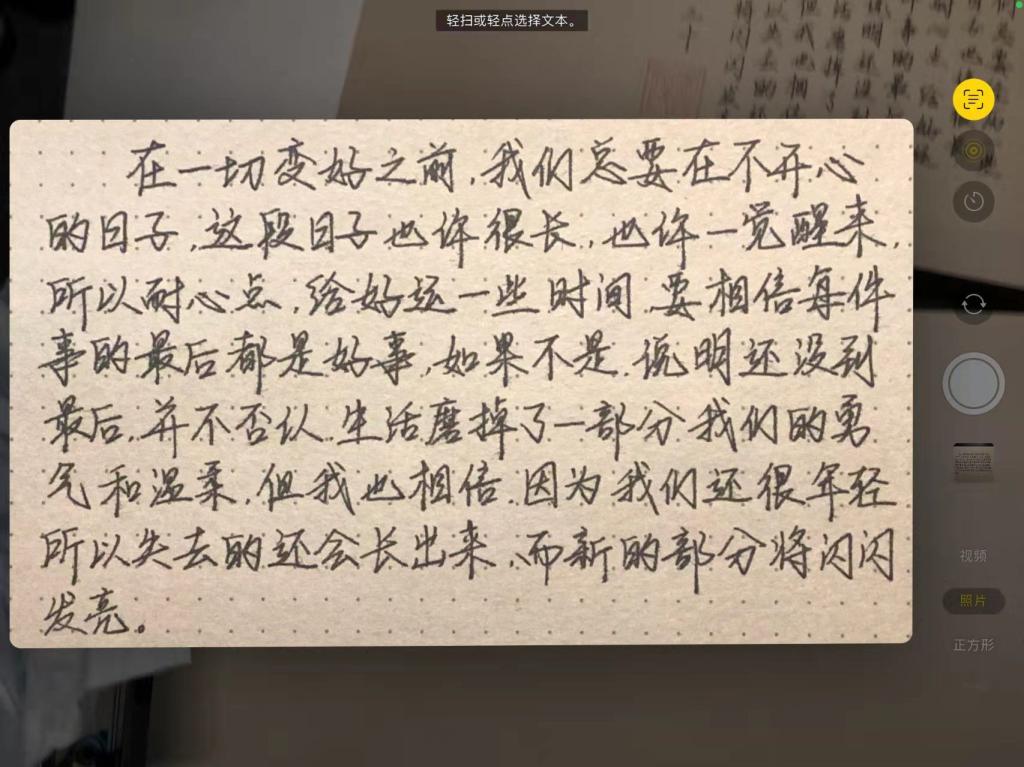 轻扫或轻点选择文本。
在一切变好之前,我们总要在不开心
的日子,这段日子也许很长,也许一觉醒来,
所以耐心点,给好运一些时间,要相信每件
事的最后都是好事,如果不是,说明还没到
最后,并不否认,生活磨掉了一部分我们的勇
气和温柔,但我也相信,因为我们还很年轻
所以失去的还会长出来,而新的部分将闪闪
发亮。
视频
照片
正方形